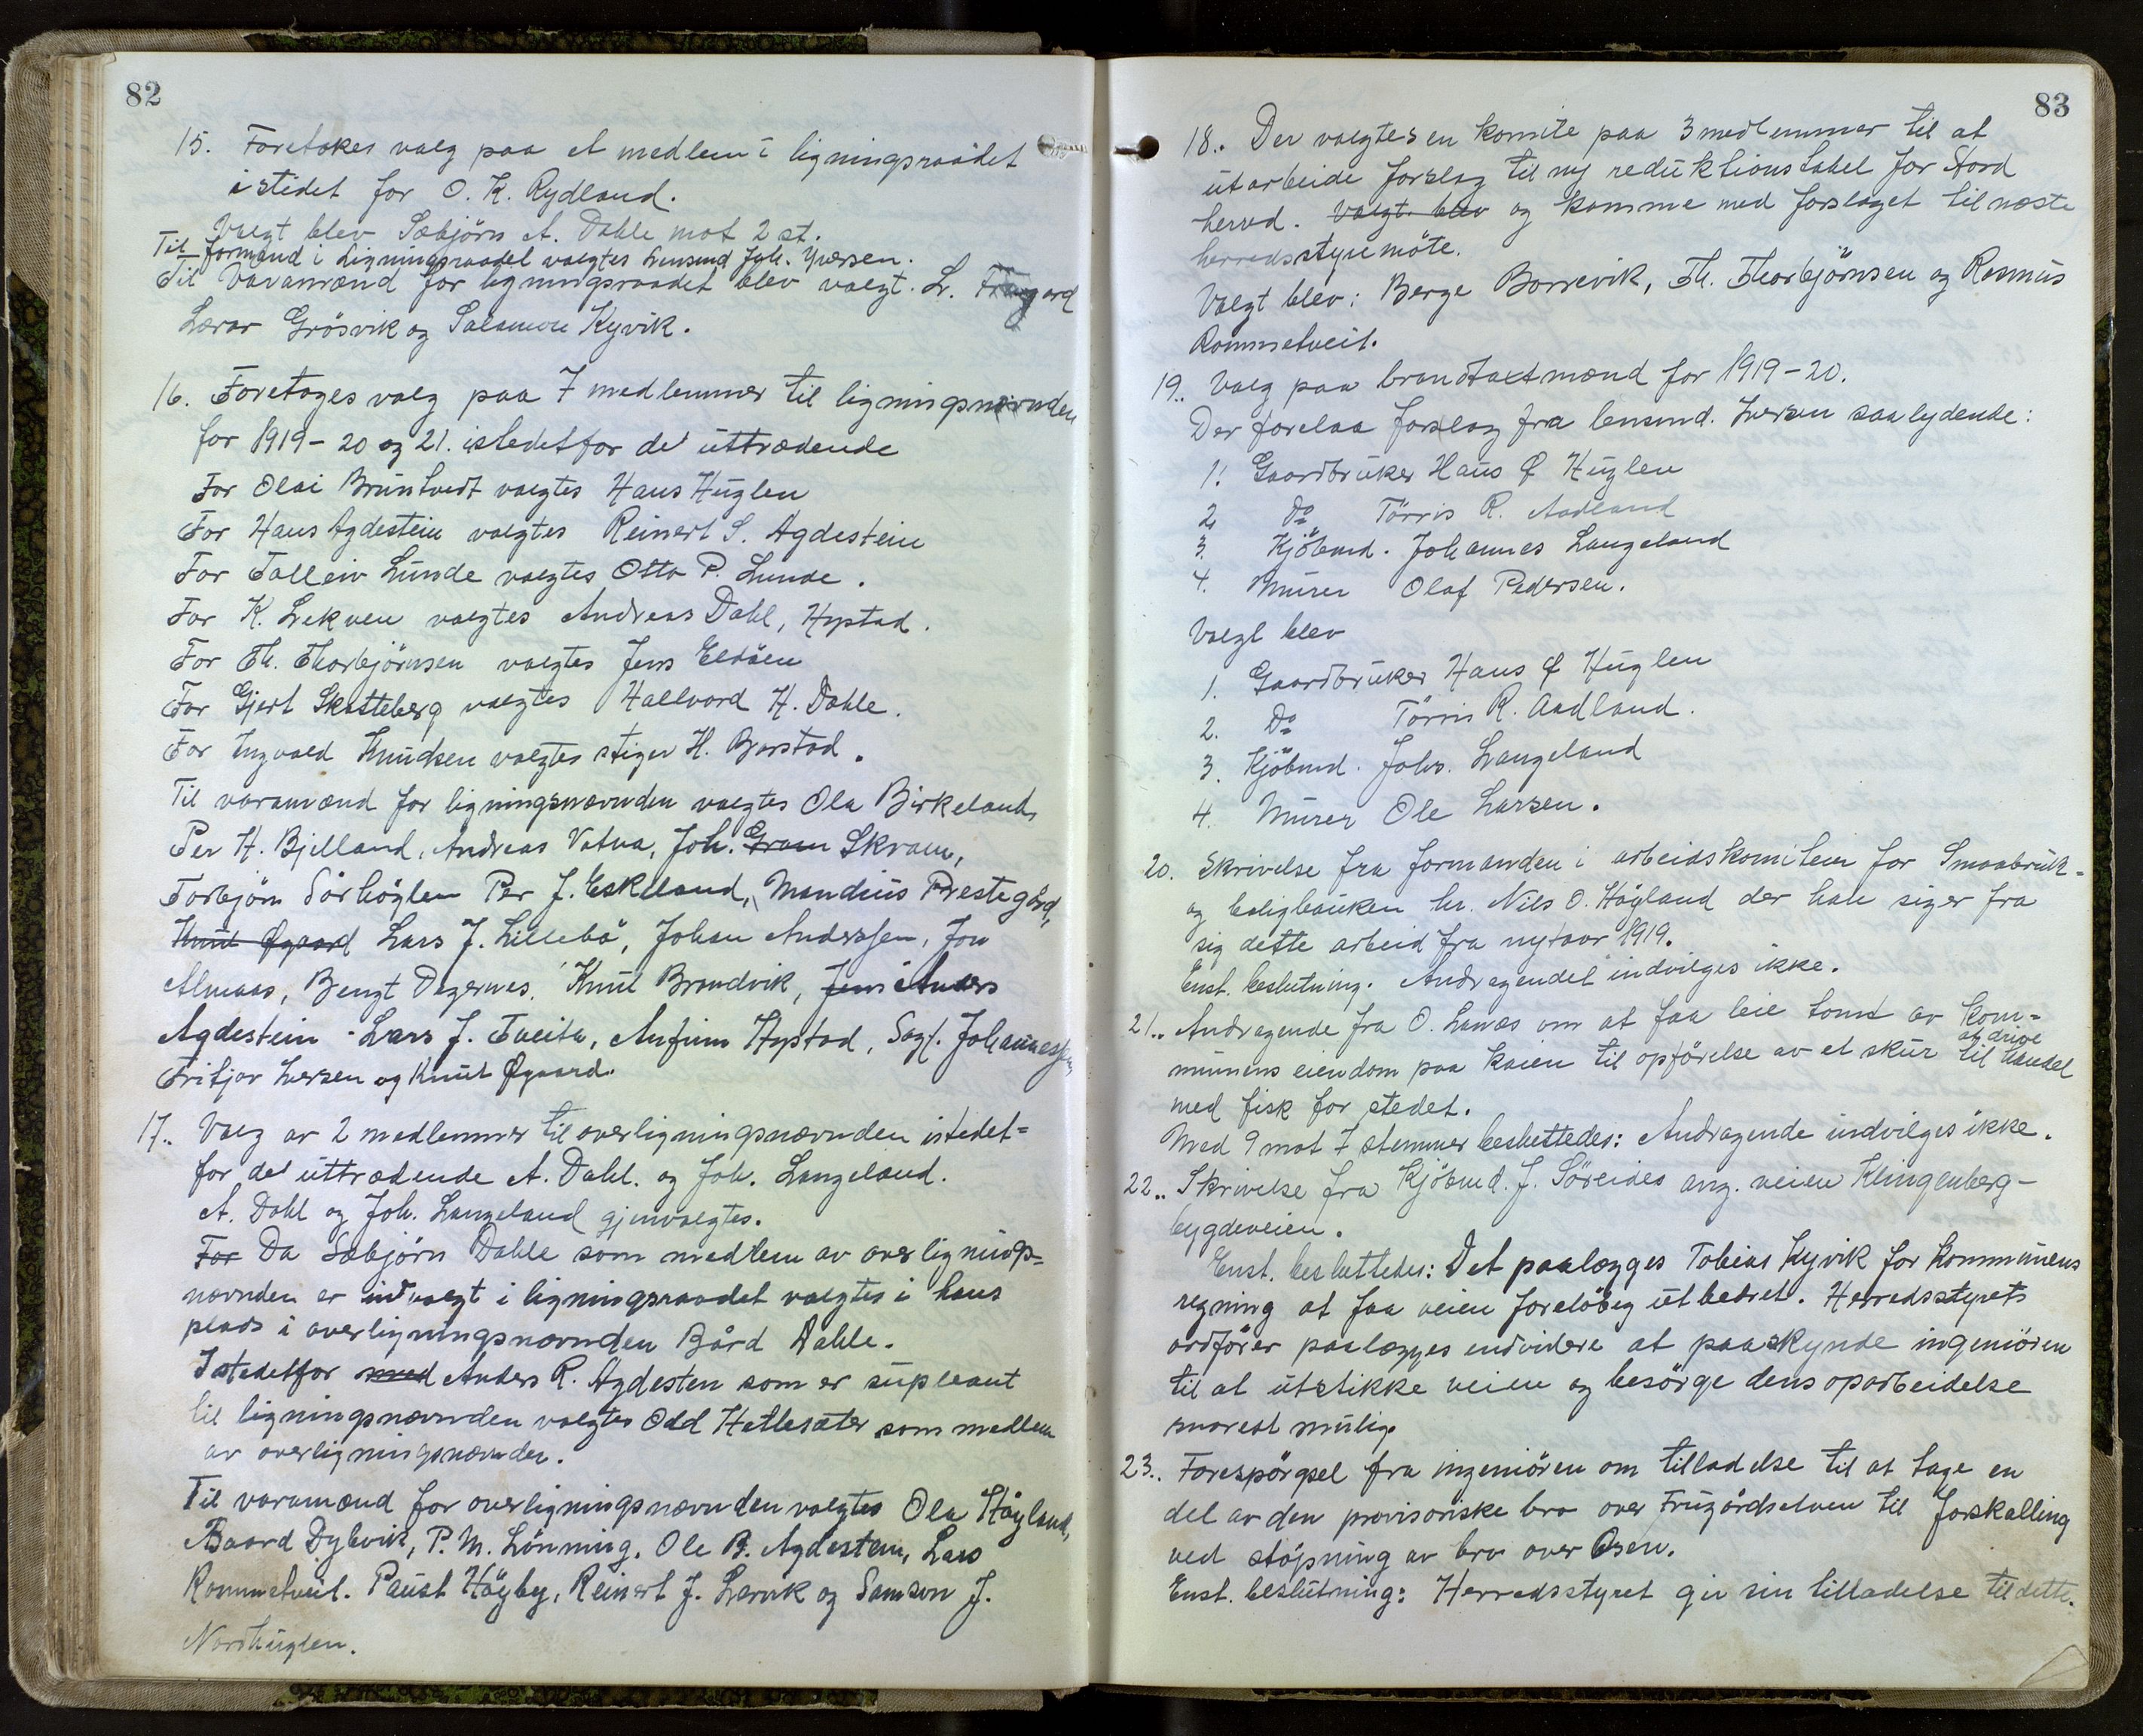 82
15. Foretokes valg paa et medlem i ligningsraadet
istedet for O. K. Rydland.
Valgt blev Sæbjörn A. Dahle mot 2 st.
Til formand i Ligningsraadet valgtes Lensmd Joh. Iversen.
Til Varamænd for ligningsraadet blev valgt. L.
Lærer Grösvik og Salamon Kyvik.
16. Foretoges valg paa 7 medlemmer til ligningsnævnden
for 1919-20 og 21. istedetfor de uttrædende
For Olai Bruntvedt valgtes Hans Huglen
For Hans Agdestein valgtes Reinert S. Agdestein
For Tolleiv Lunde valgtes Otto P. Lunde.
For K. Lekven valgtes Andreas Dahl, Hystad.
For Th. Thorbjörnsen valgtes Jens Eldöen
For Gjert Skatteberg valgtes Hallvard H. Dahle.
For Ingvald Knudsen valgtes stiger H. Barstad.
Til varamænd for ligningsnævnden valgtes Ola Birkeland,
Per H. Bjelland, Andreas Vatna, Joh. Gram Skram,
Torbjörn Sörhöglen Per J. Eskeland, Mandius Prestegård,
Knut Øgaard Lars J. Lillebö, Johan Anderssen, Jon
Almaas, Bengt Dagernes, Knut Brandvik, Jens Anders
Agdestein - Lars J. Tveita, Anfinn Hystad, Sagf. Johannessen,
Fritjov Iversen og Knut Øgaard.
17. Valg av 2 medlemmer til overligningsnævnden istedet=
for de uttrædende A. Dahl. og Joh. Langeland.
A. Dahl og Joh. Langeland gjenvalgtes.
For Da Sæbjörn Dahle som medlem av overlignings=
nævnden er indvalgt i ligningsraadet valgtes i hans
plads i overligningsnævnden Bård Dahle.
Istedetfor med Anders R. Agdesten som er supleant
til ligningsnævnden valgtes Odd Hatlesæter som medlem
av overligningsnævnden.
Til varamænd for overligningsnævnden valgtes Ola Höyland,
Baard Dybvik, P. M. Lönning, Ole B. Agdestein, Lars
Rommetveit. Paust Höyby, Reinert J. Larvik og Samson J.
Nordhuglen.
83
18.. Der valgtes en komite paa 3 medlemmer til at
utarbeide forslag til ny reduktionstabel for Stord
herred. Valgt blev og komme med forslaget til næste
herredsstyremöte.
Valgt blev: Berge Borrevik, Th. Thorbjörnsen og Rasmus
Rommetveit.
19.. Valg paa brandtaxtmænd for 1919-20.
Der forelaa forslag fra lensmd. Iversen saalydende:
1. Gaardbruker Hans Ø Huglen
2. Do Törris R. Aadland
3. Kjöbmd. Johannes Langeland
4. Murer Olaf Pedersen.
Valgt blev
1. Gaardbruker Hans Ø Huglen
2. Do Törris R. Aadland.
3. Kjöbmd. Johs. Langeland
4. Murer Ole Larsen.
20. Skrivelse fra formanden i arbeidskomiteen for Smaabruk=
og boligbanken hr. Nils O. Höyland der han siger fra
sig dette arbeid fra nytaar 1919.
Enst. beslutning. Andragendet indvilges ikke.
21.. Andragende fra O. Lunæs om at faa leie tomt av kom=
munens eiendom paa kaien til opförelse av et skur til at drive handel
med fisk for stedet.
Med 9 mot 7 stemmer besluttedes: Andragende indvilges ikke.
22.. Skrivelse fra Kjöbmd. J. Söreides ang. veien Klingenberg-
bygdeveien.
Enst. besluttedes: Det paalægges Tobias Kyvik for kommunens
regning at faa veien foreløbig utbedret. Herredsstyrets
ordförer paalægges endvidere at paaskynde ingeniören
til at utstikke veien og besörge dens oparbeidelse
snarest mulig.
23.. Forespörgsel fra ingeniören om tilladelse til at tage en
del av den provisoriske bro over Frugårdselven til forskalling
ved stöpning av bro over Osen.
Enst. beslutning: Herredsstyret gir sin tilladelse til dette.